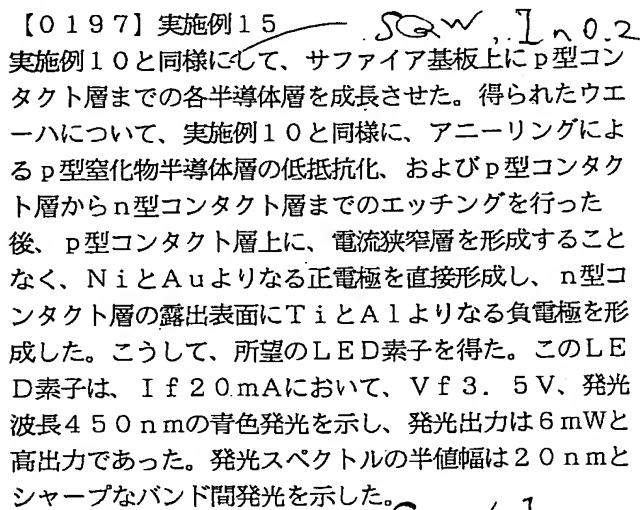 【０１９７】実施例１５ SQW, In0.2
実施例１０と同様にして、サファイア基板上にｐ型コン
タクト層までの各半導体層を成長させた。得られたウエ
ーハについて、実施例１０と同様に、アニーリングによ
るｐ型窒化物半導体層の低抵抗化、およびｐ型コンタク
ト層からｎ型コンタクト層までのエッチングを行った
後、ｐ型コンタクト層上に、電流狭窄層を形成すること
なく、ＮｉとＡｕよりなる正電極を直接形成し、ｎ型コ
ンタクト層の露出表面にＴｉとＡｌよりなる負電極を形
成した。こうして、所望のＬＥＤ素子を得た。このＬＥ
Ｄ素子は、Ｉｆ２０ｍＡにおいて、Ｖｆ３．５Ｖ、発光
波長４５０ｎｍの青色発光を示し、発光出力は６ｍＷと
高出力であった。発光スペクトルの半値幅は２０ｎｍと
シャープなバンド間発光を示した。